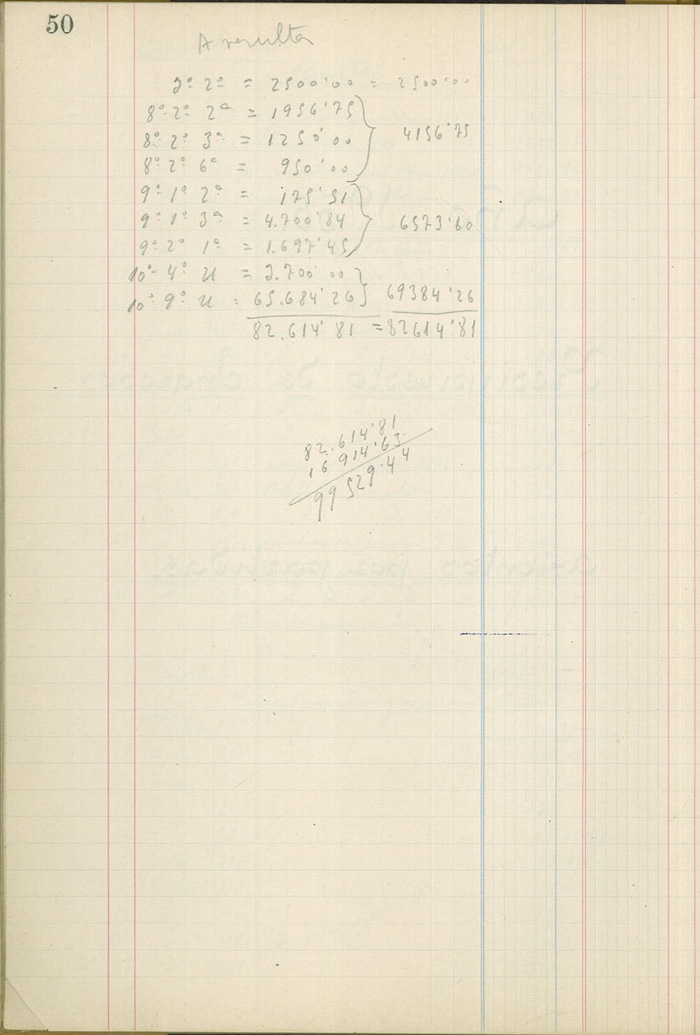 50
A resultas
3º 2º = 2500'00 = 2500'00
8º 2º 2ª = 1956'75
8º 2º 3ª = 1250'00 4156'75
8º 2º 6ª = 950'00
9º 1º 2ª = 175'51
9º 1º 3ª = 4.700'84 6573'80
9º 2º 1ª = 1.697'45
10º 4º U = 3.700'00
10º 9º U = 65.684'26 69384'26
82.614'81 = 82614'81
82.614'81
16 914'63
99 529'44